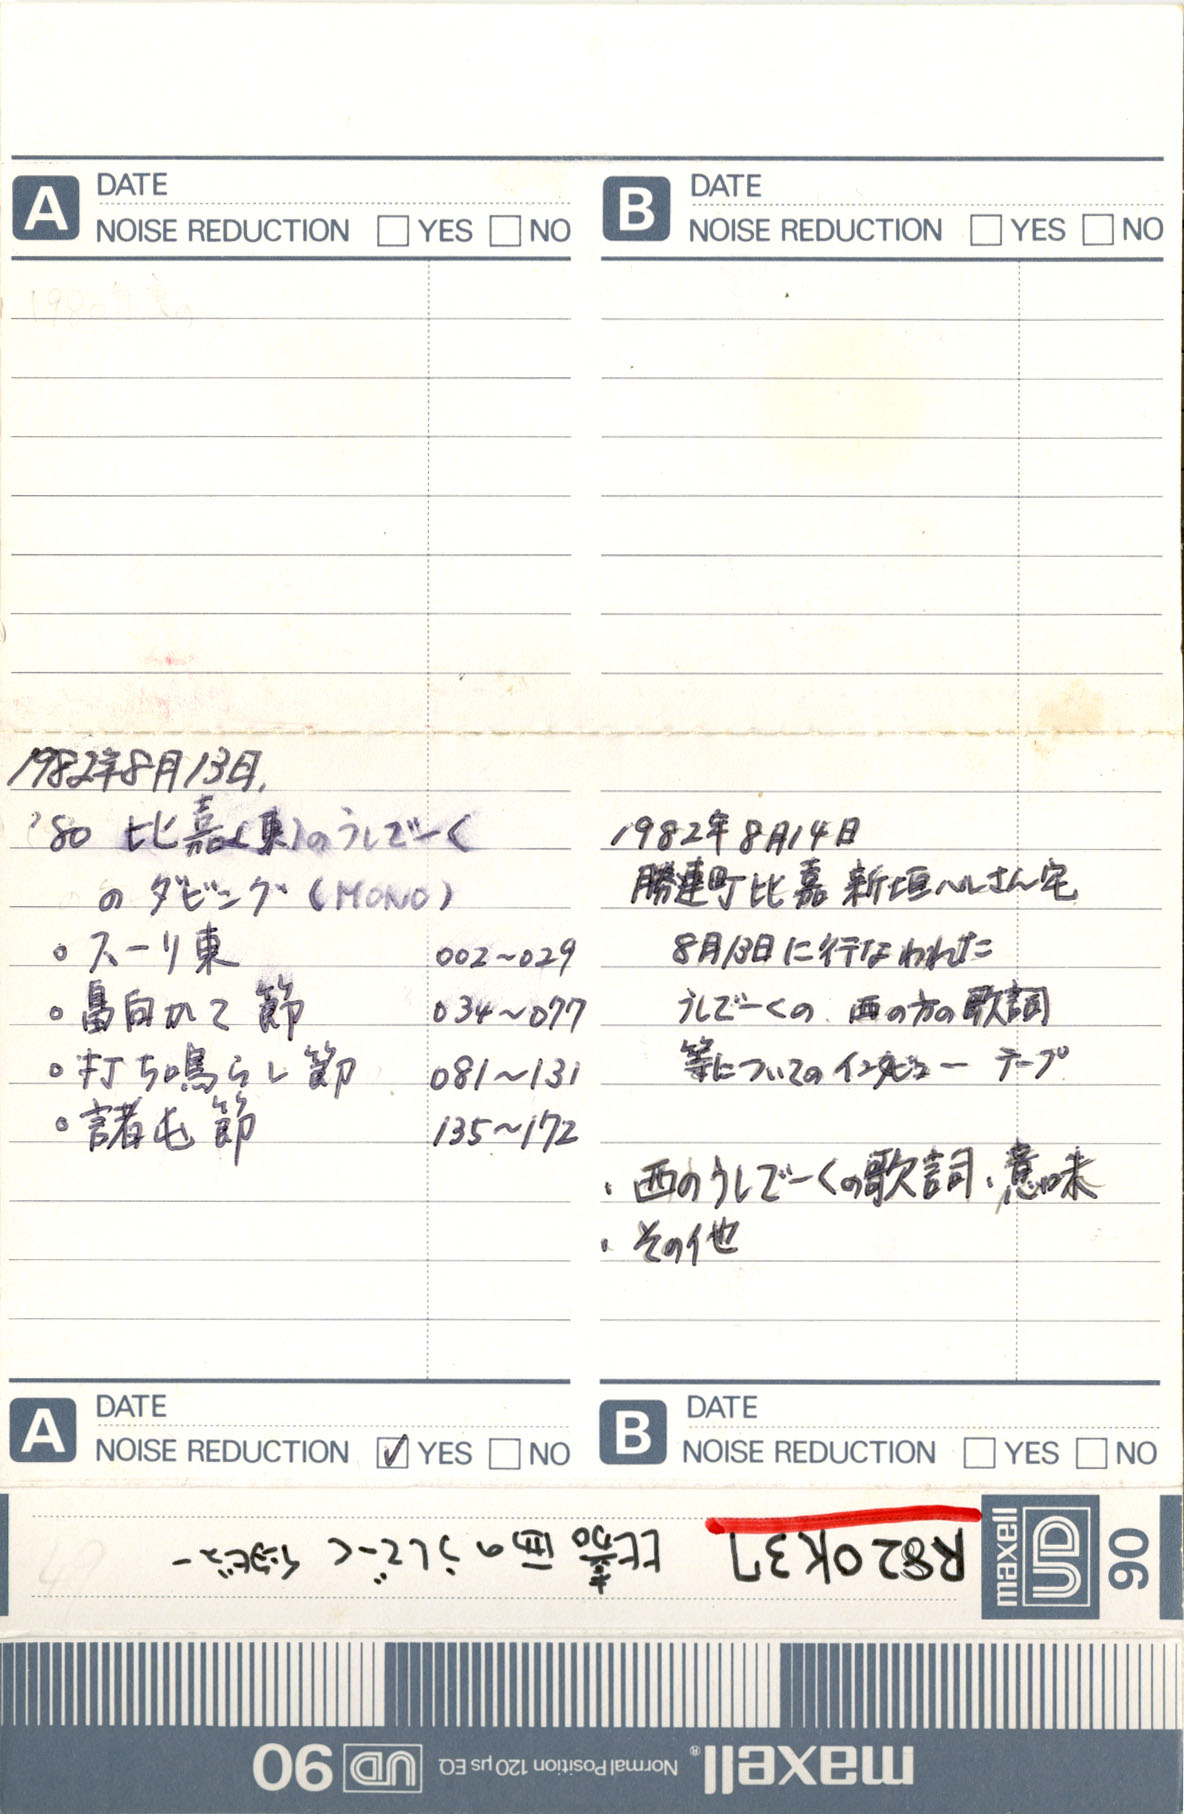 A DATE
NOISE REDUCTION YES NO
B DATE
NOISE REDUCTION YES NO
1982年8月13日.
'80 比嘉(東)のうしでーく
のダビング(MONO)
○スーリ東 002~029
○畠白かて節 034~077
○打ち鳴らし節 081~131
○諸屯節 135~172
1982年8月14日
勝連町比嘉 新垣ハルさん宅
8月13日に行なわれた
うしでーくの 西の方の歌詞
等についてのインタビュー テープ
・西のうしでーくの歌詞、意味
・その他
A DATE
NOISE REDUCTION ✓YES NO
B DATE
NOISE REDUCTION YES NO
maxell UD 90
R82OK37 比嘉西のうしでーく インタビュー
maxell® Normal Position 120 μs EQ UD 90